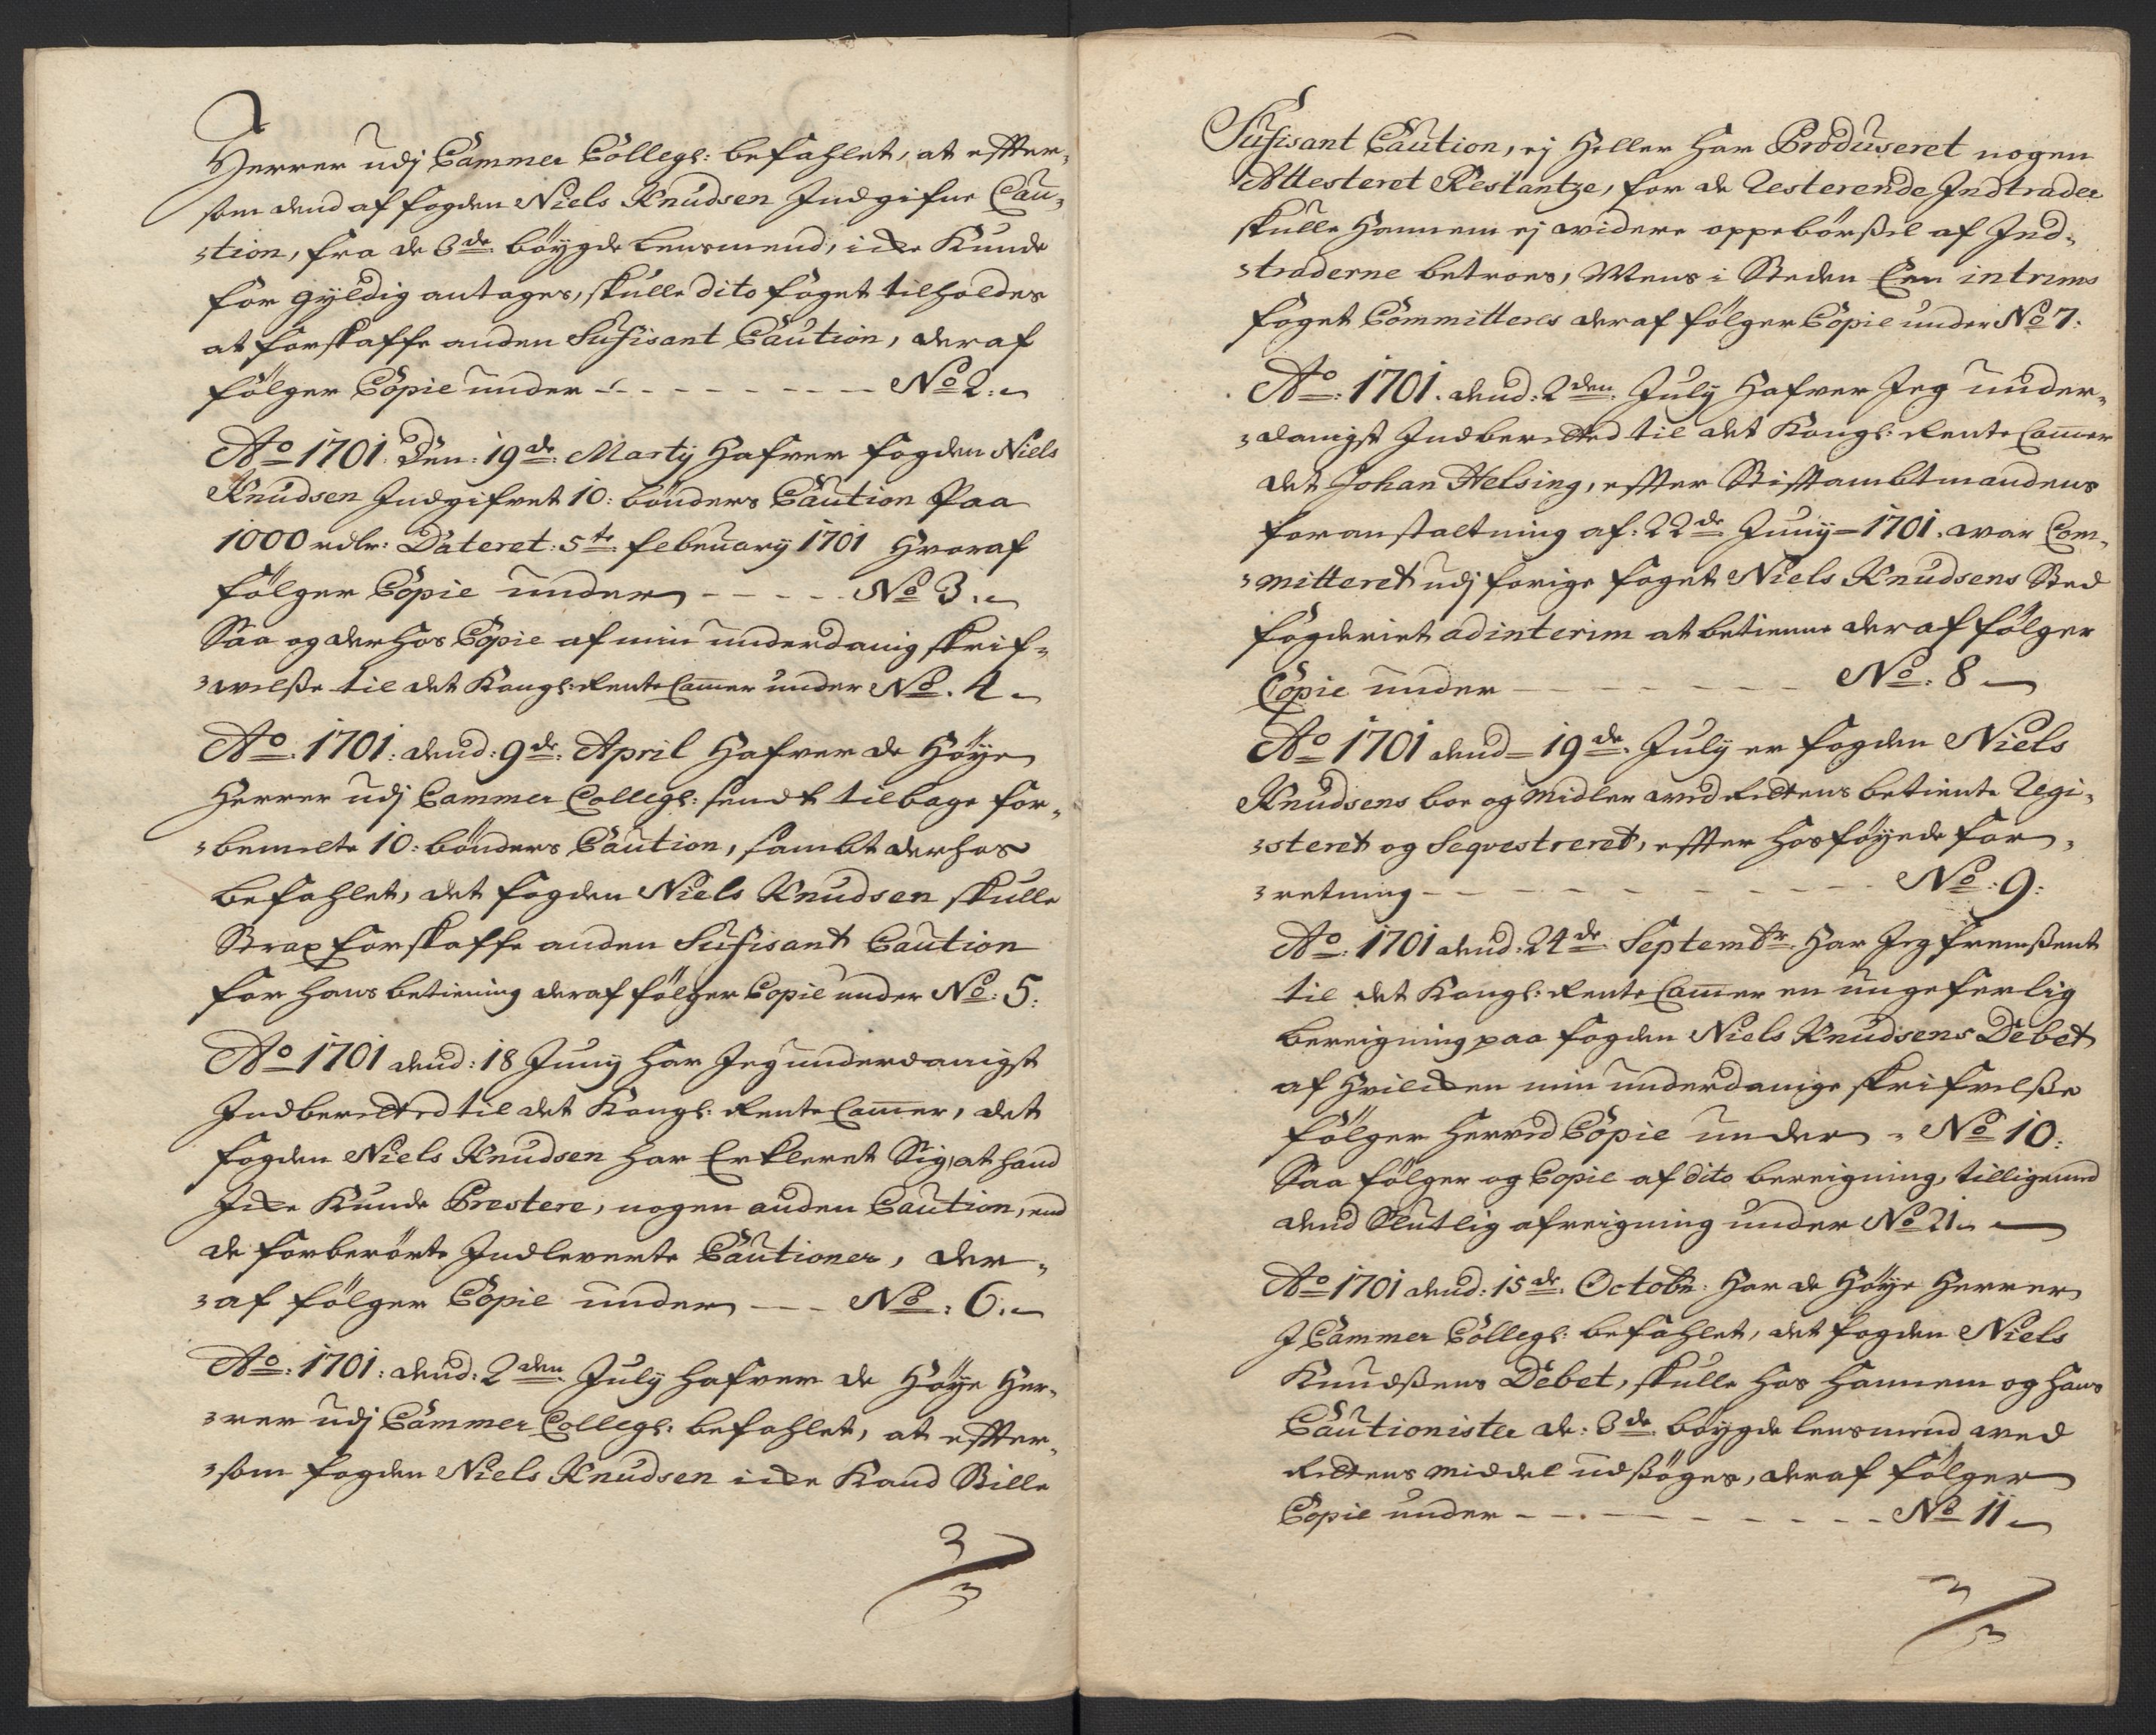 Herrer udj Cammer Collegs: befahlet, at effter¬
som dend af fogden Niels Knudsen Indgifne Cau¬
¬tion, fra de 3de bøygde lensmend, icke Kunde
for gyldig antages, skulle dito foget tilholdes
at forskaffe anden Sufisant Caution, deraf
følger Copie under - - - - - - - - No 2:
Ao 1701. Den: 19de: Marty Hafver fogden Niels
Knudsen Indgifvet 10: bønders Caution Paa
1000 rdlr: Dateret: 5te: februarij 1701 Hvoraf
følger Copie under - - - - - No 3.
Saa og derhos Copie af min underdanig skrif¬
¬welsse til det Kongl: Rente Camer under No. 4
Ao. 1701: dend: 9de: April Hafver de Høye
Herrer udj Cammer Collegs: sendt tilbage for¬
¬bemelte 10: bønders Caution, sambt derhos
befahlet, det fogden Niels Knudsen skulle
Strax forskaffe anden Sufisant Caution
for hans betiening deraf følger Copie under No: 5:
Ao 1701 dend: 18 Junij har Jeg underdanigst
Indberetted til det Kongl: Rente Camer, det
fogden Niels Knudsen har Erkleret Sig, at hand
Icke Kunde Prestere, nogen anden Caution, end
de forberørte Indleverte Cautioner, der¬
¬af følger Copie under - - - No: 6:
Ao: 1701: dend: 2den July hafver de Høye Her¬
¬rer udj Cammer Collegs: befahlet, at effter¬
¬som fogden Niels Knudsen icke Kand Stille
Sufisant Caution, ej Heller har Produseret nogen
Attesteret Restantze, for de Resterende Indtrader
skulle Hannem ej widere oppebørsel af Ind¬
¬traderne betroes, Mens i Steden Een intrims
foget Committeres deraf følger Copie under No 7:
Ao: 1701. dend: 2den July Hafver Jeg under¬
¬danigst Indberetted til det Kongl: Rente Camer
det Johan Helsing, effter Stifftambtmandens
foranstaltning af: 22de Junij 1701. war Com¬
¬mitteret udj forige foget Niels Knudsens Sted
fogderiet ad interim at betienne deraf følger
Copie under - - - - - - - No: 8
Ao 1701 dend 19de. July er fogden Niels
Knudsens boe og Midler wed Rettens betiente Regi¬
¬steret og Seqvestreret, effter hosføyede for¬
¬retning - - - - - - - - - No: 9:
Ao: 1701 dend: 24de Septembr: Har Jeg fremssent
til det Kongl: Rente Camer en ungeferlig
bereigning paa fogden Niels Knudsens Debet
af Hvilcken min underdanige skrifvelsse
følger Herved Copie under - No 10:
Saa følger og Copie af dito bereigning, tilligemed
dend Slutlig afreigning under No 21.
Ao 1701 dend: 15de. Octobr: Har de Høye Herrer
J Cammer Collegs: befahlet, det fogden Niels
Knudssens Debet, skulle hos Hannem og hans
Cautionister de: 3de bøygde lensmend wed
Rettens Middel udssøges, deraf følger
Copie under - - - - - - - - No 11